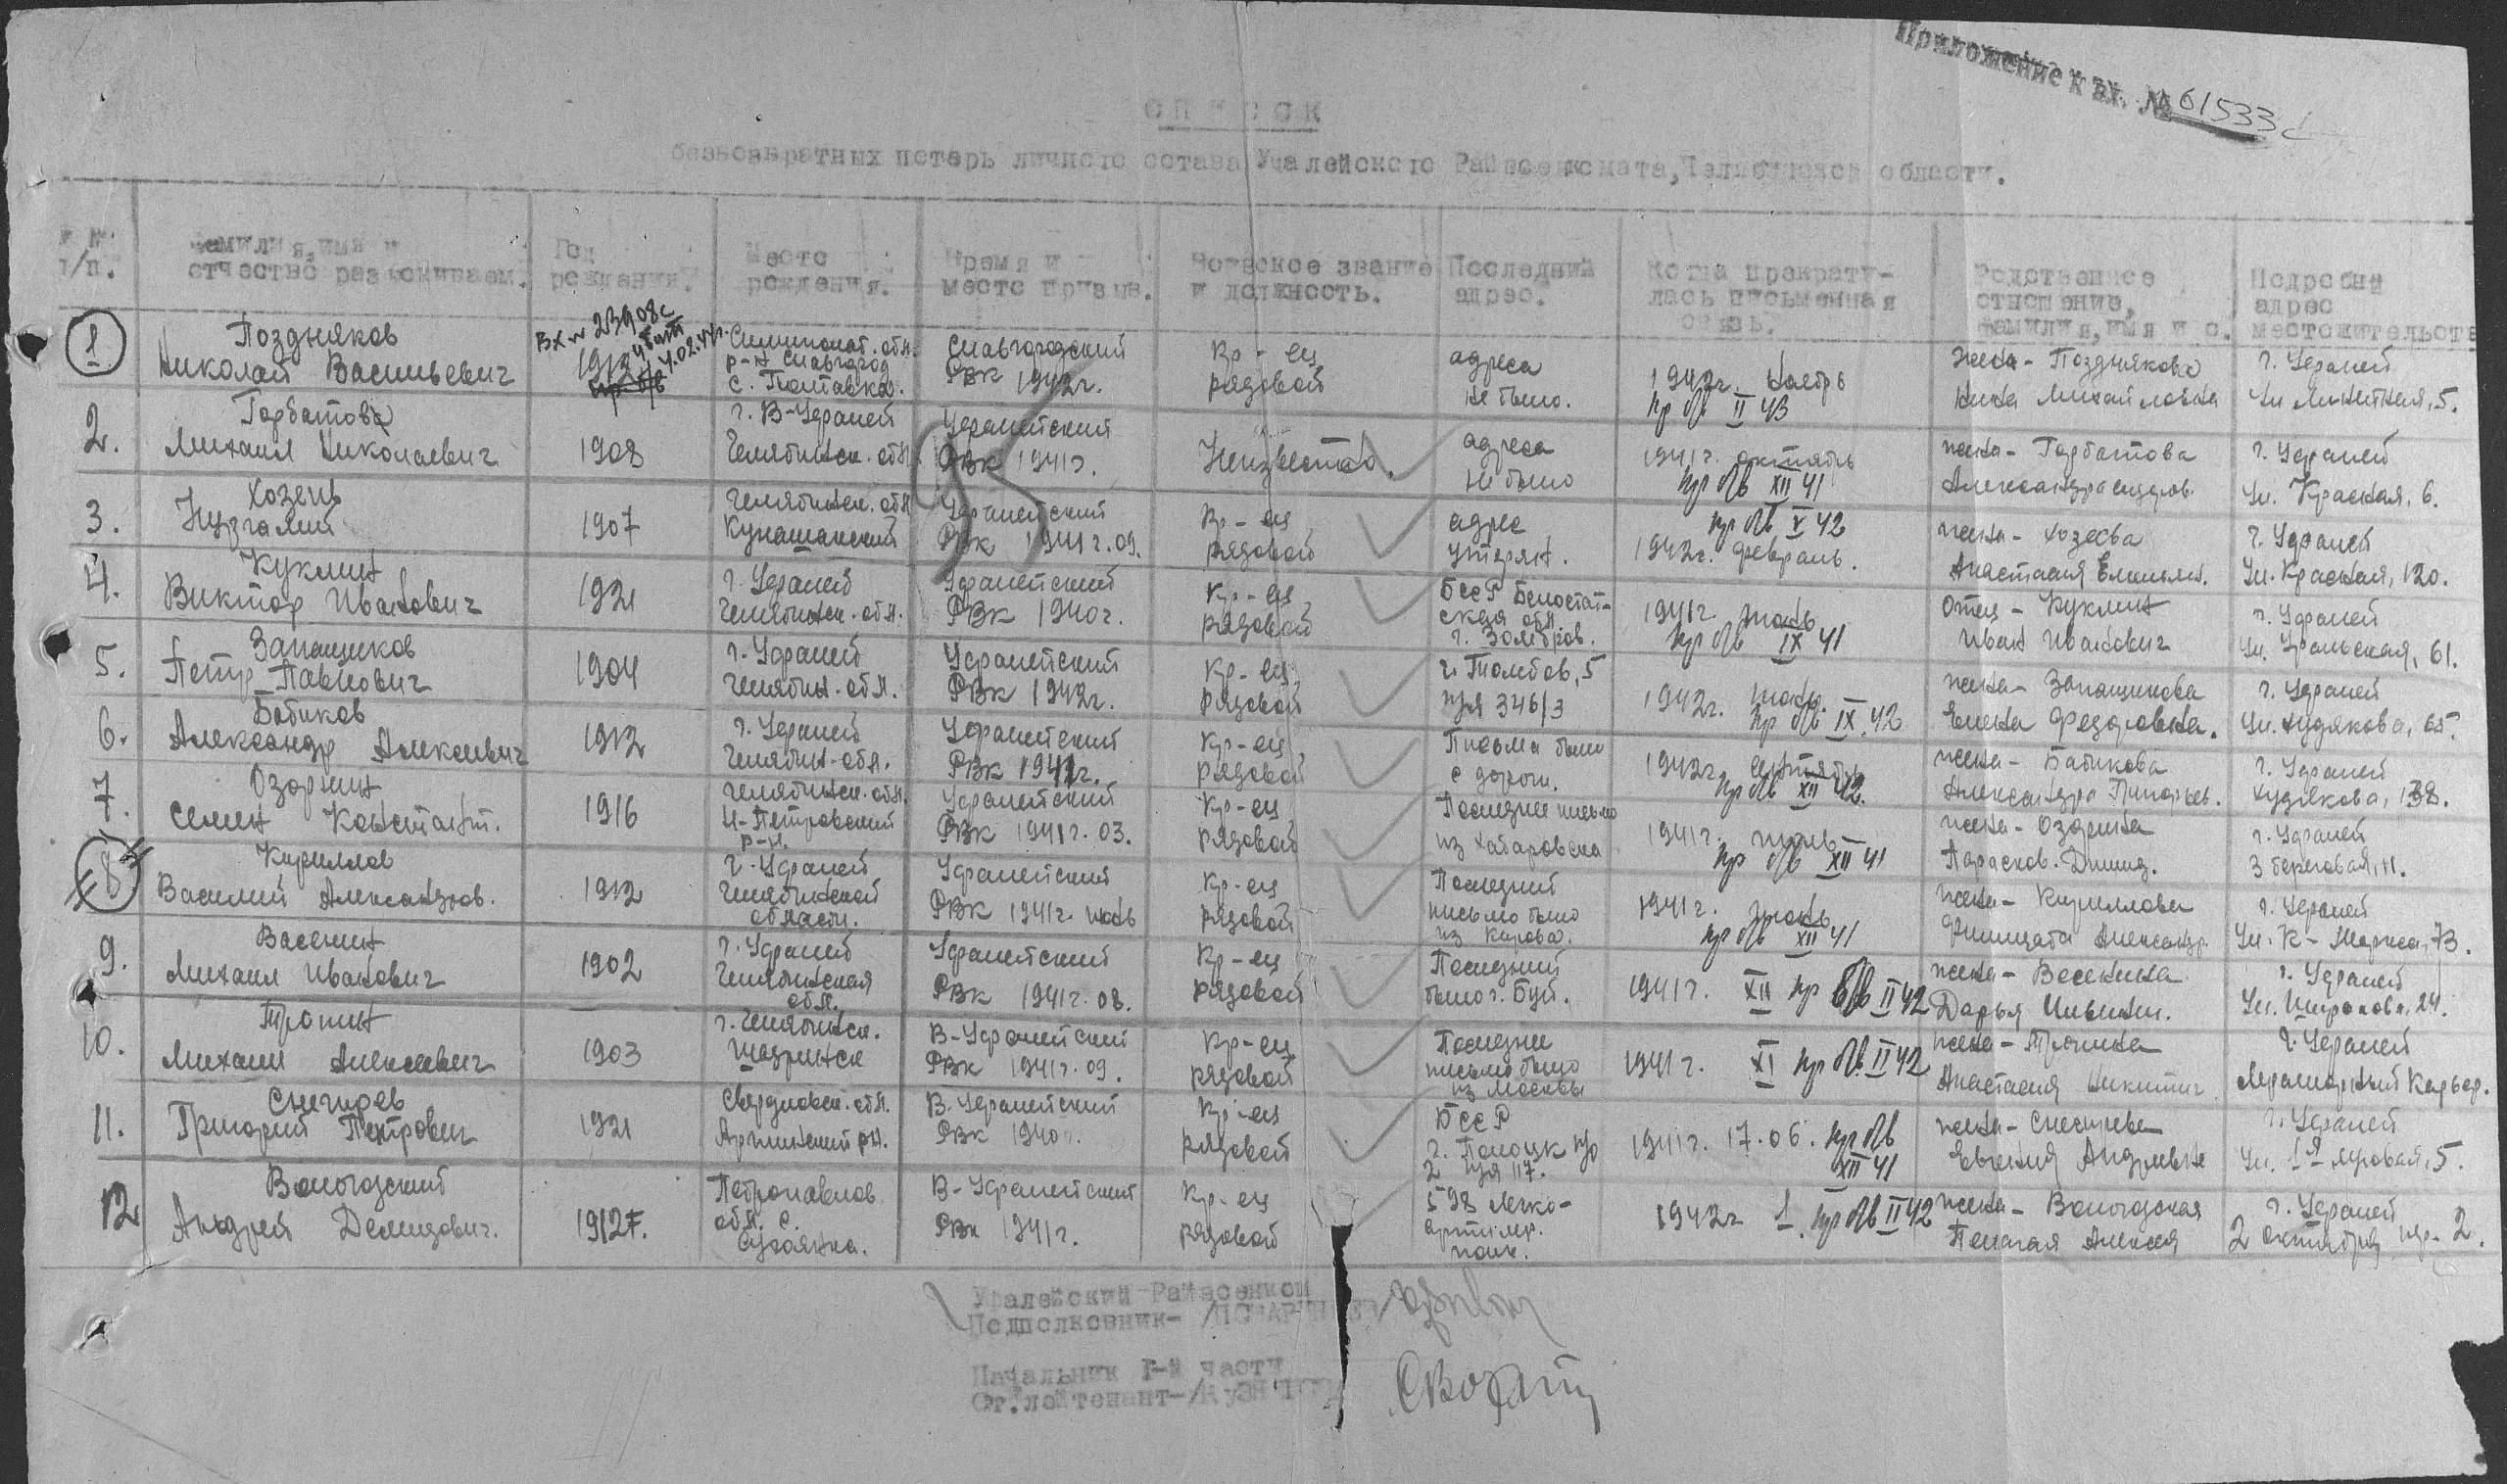 Приложение к вх. № 61533с
СПИСОК
безвозвратных потерь личного состава Уфалейского Райвоенкомата, Челябинской области.
№№ п/п.
Фамилия, имя и отчество разыскиваем.
Год рождения.
Место рождения.
Время и место призыва.
Воинское звание и должность.
Последний адрес.
Когда прекратилась письменная связь.
Родственное отношение, фамилия, имя и о.
Подробный адрес местожительства
Вх № 23908с
1 Поздняков Николай Васильевич
1912
Семипалат. обл. р-н Славгород с. Полтавка.
Славгородский РВК 1942г.
Кр-ец рядовой
адреса не было.
1942г. ноябрь пр б/в II 43
жена - Позднякова Нина Михайловна
г. Уфалей 5.
2. Горбатов Михаил Николаевич
1908
г. В-Уфалей Челябинск. обл.
Уфалейский РВК 1941г.
Неизвестно.
адреса не было
1941г. октябрь пр б/в XII 41
жена - Горбатова
г. Уфалей Ул. Красная, 6.
3. Хозеев Нузгалий
1907
Челябинск. обл. Кунашакский
Уфалейский РВК 1941г. 09.
Кр-ец рядовой
адрес утерян.
пр б/в V 42 1942г. февраль.
жена - Хозеева Анастасия Емельян.
г. Уфалей Ул. Красная, 120.
4. Куклин Виктор Иванович
1921
г. Уфалей Челябинск. обл.
Уфалейский РВК 1940г.
Кр-ец рядовой
БССР Белостатская обл. г. Замбров.
1941г. июнь пр б/в IX 41
отец - Куклин Иван Иванович
г. Уфалей Ул. Уральская, 61.
5. Запащиков Петр Павлович
1904
г. Уфалей Челябин. обл.
Уфалейский РВК 1942г.
Кр-ец рядовой
г. Тамбов, 5 п/я 346/3
1942г. июнь. пр б/в IX. 42
жена - Запащикова Елена Федоровна.
г. Уфалей Ул. Худякова, 65.
6. Бабиков Александр Алексеевич
1912
г. Уфалей Челябин. обл.
Уфалейский РВК 1941г.
Кр-ец рядовой
Письма было с дороги.
1942г. сентябрь пр б/в XII 42.
жена - Бабикова Александра
г. Уфалей Худякова, 138.
7. Озорнин Семен Констант.
1916
Челябинск. обл. Н-Петровский р-н.
Уфалейский РВК 1941г. 03.
Кр-ец рядовой
Последнее письмо из Хабаровска
1941г. июль пр б/в XII 41
жена - Озорнина Парасков.
г. Уфалей 3 береговая, 11.
8. Кириллов Василий Александров.
1912
г. Уфалей Челябинской области.
Уфалейский РВК 1941г. июнь
Кр-ец рядовой
Последний письмо было из Кирова.
1941г. июнь пр б/в XII 41
жена - Кириллова Фелицата Александр.
г. Уфалей Ул. К-Маркса, 73.
9. Васенин Михаил Иванович
1902
г. Уфалей Челябинская обл.
Уфалейский РВК 1941г. 08.
Кр-ец рядовой
Последний было г. Буй.
1941г. XII пр б/в II 42
жена - Васенина Дарья
г. Уфалей Ул. Широкова, 24.
10. Тропин Михаил Алексеевич
1903
г. Челябинск. Шадринск
В-Уфалейский РВК 1941г. 09.
Кр-ец рядовой
Последнее письмо было из Москвы
1941г. XI пр б/в II 42
жена - Тропина Анастасия Никитич
г. Уфалей Мраморный Карьер.
11. Снегирев Григорий Петрович
1921
Свердловск. обл. Артинский рн.
В. Уфалейский РВК 1940г.
Кр-ец рядовой
БССР г. Полоцк п/о 2 п/я 117.
1941г. 17.06. пр б/в XII 41
жена - Снегирева Евгения Андреевна
г. Уфалей Ул. 1я 5.
12 Вологодский Андрей Демидович.
1912г.
Петропавлов обл. с.
В-Уфалейский РВК 1941г.
Кр-ец рядовой
598 Легко-артилер. полк.
1942г I. пр б/в II 42
жена - Вологодская Пелагея Алексея
г. Уфалей 2 октября 2.
Уфалейский Райвоенком
Подполковник-
Начальник I-й части
Ст. лейтенант-